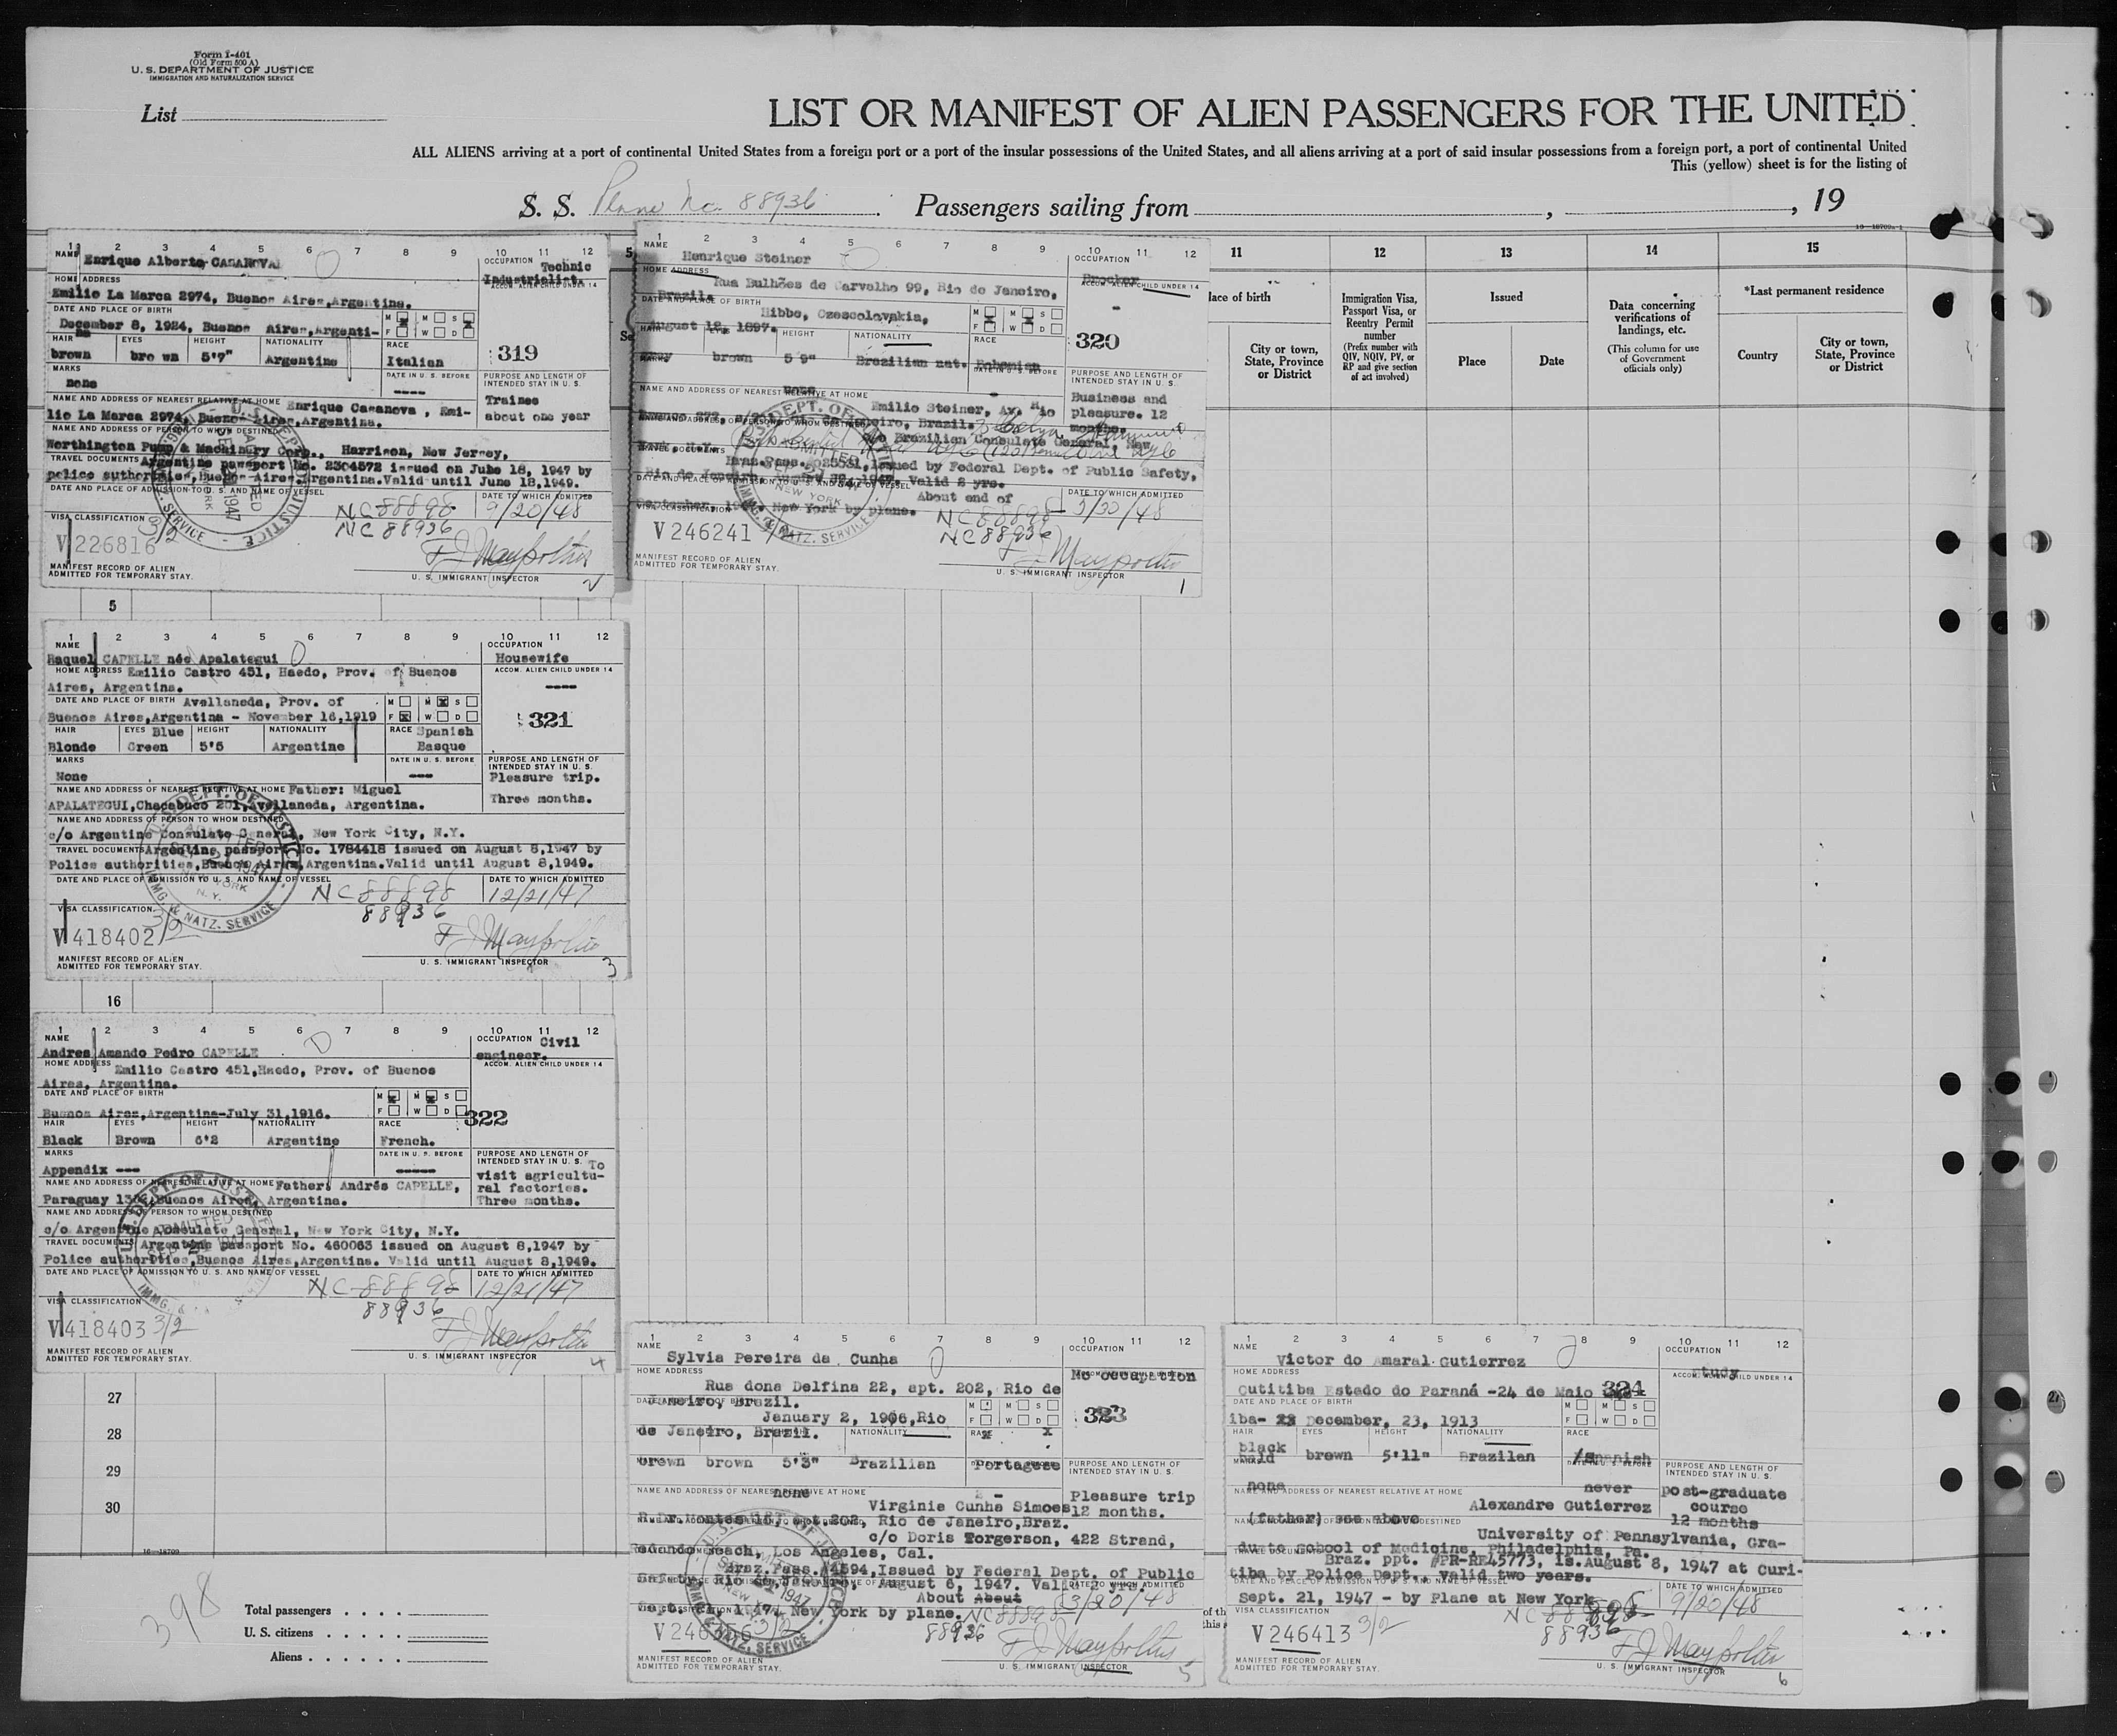 Form I-401
(Old Form 500 A)
U. S. DEPARTMENT OF JUSTICE
IMMIGRATION AND NATURALIZATION SERVICE
List
LIST OR MANIFEST OF ALIEN PASSENGERS FOR THE UNITED
ALL ALIENS arriving at a port of continental United States from a foreign port or a port of the insular possessions of the United States, and all aliens arriving at a port of said insular possessions from a foreign port, a port of continental United
This (yellow) sheet is for the listing of
S. S. Plane No. 88936 Passengers sailing from , , 19
11 12 13 14 15
lace of birth
City or town, State, Province or District
Immigration Visa, Passport Visa, or Reentry Permit number
(Prefix number with QIV, NQIV, PV, or RP and give section of act involved)
Issued
Place Date
Data concerning verifications of landings, etc.
(This column for use of Government officials only)
*Last permanent residence
Country
City or town, State, Province or District
1 2 3 4 5 6 7 8 9 10 11 12
NAME Enrique Alberto CASANOVA
OCCUPATION Technic
Industrialist
HOME ADDRESS
ACCOM. ALIEN CHILD UNDER 14
Emilio La Marca 2974, Buenos Aires,Argentina.
DATE AND PLACE OF BIRTH
December 8, 1924, Buenos Aires,Argenti-
na
M M S
F W D
319
HAIR EYES HEIGHT NATIONALITY RACE
brown bro wn 5'7" Argentine Italian
MARKS
none
DATE IN U. S. BEFORE
----
PURPOSE AND LENGTH OF INTENDED STAY IN U. S.
Trainee
about one year
NAME AND ADDRESS OF NEAREST RELATIVE AT HOME Enrique Casanova , Emi-
lio La Marca 2974, Buenos Aires,Argentina.
NAME AND ADDRESS OF PERSON TO WHOM DESTINED
Worthington Pump & Machinery Corp., Harrison, New Jersey,
TRAVEL DOCUMENTS Argentine passport No. 2304572 issued on June 18, 1947 by
police authorities,Buenos Aires,Argentina.Valid until June 18,1949.
DATE AND PLACE OF ADMISSION TO U. S. AND NAME OF VESSEL
DATE TO WHICH ADMITTED
NC 88898 9/20/48
NC 88936
VISA CLASSIFICATION 3/2
V 226816
MANIFEST RECORD OF ALIEN
ADMITTED FOR TEMPORARY STAY.
U. S. IMMIGRANT INSPECTOR
1 2 3 4 5 6 7 8 9 10 11 12
NAME
Henrique Steiner
OCCUPATION
Brocker
HOME ADDRESS
ACCOM. ALIEN CHILD UNDER 14
Rua Bulhões de Carvalho 99, Rio de Janeiro,
Brazil.
DATE AND PLACE OF BIRTH
Hibbe, Czescolovakia,
August 12, 1897.
M M S
F W D
320
HAIR EYES HEIGHT NATIONALITY RACE
brown 5 9" Brazilian nat. Bohemian
MARKS
none
DATE IN U. S. BEFORE
PURPOSE AND LENGTH OF INTENDED STAY IN U. S.
Business and
pleasure. 12
months.
NAME AND ADDRESS OF NEAREST RELATIVE AT HOME
Emilio Steiner, Av. Rio
NAME AND ADDRESS OF PERSON TO WHOM DESTINED
c/o Brazilian Consulate General, New
York, N.Y.
TRAVEL DOCUMENTS
Issued by Federal Dept. of Public Safety,
Valid 2 yrs.
DATE AND PLACE OF ADMISSION TO U. S. AND NAME OF VESSEL
About end of
DATE TO WHICH ADMITTED
New York by plane.
NC 88898
NC 88936
V 246241
MANIFEST RECORD OF ALIEN
ADMITTED FOR TEMPORARY STAY.
U. S. IMMIGRANT INSPECTOR
1
5
1 2 3 4 5 6 7 8 9 10 11 12
NAME
OCCUPATION
Raquel CAPELLE née Apalategui
Housewife
HOME ADDRESS Emilio Castro 451, Haedo, Prov. of Buenos
ACCOM. ALIEN CHILD UNDER 14
Aires, Argentina.
----
DATE AND PLACE OF BIRTH Avellaneda, Prov. of
Buenos Aires,Argentina - November 16,1919
M M S
F W D
321
HAIR EYES Blue HEIGHT NATIONALITY RACE Spanish
Blonde Green 5'5 Argentine Basque
MARKS
None
DATE IN U. S. BEFORE
---
PURPOSE AND LENGTH OF INTENDED STAY IN U. S.
Pleasure trip.
Three months.
NAME AND ADDRESS OF NEAREST RELATIVE AT HOME Father: Miguel
APALATEGUI,Chacabuco 201,Avellaneda, Argentina.
NAME AND ADDRESS OF PERSON TO WHOM DESTINED
c/o Argentine Consulate General, New York City, N.Y.
TRAVEL DOCUMENTS Argentine passport No. 1784418 issued on August 8,1947 by
Police authorities,Buenos Aires,Argentina.Valid until August 8,1949.
DATE AND PLACE OF ADMISSION TO U. S. AND NAME OF VESSEL
DATE TO WHICH ADMITTED
NC 88898 12/21/47
88936
VISA CLASSIFICATION 3/2
V 418402
MANIFEST RECORD OF ALIEN
ADMITTED FOR TEMPORARY STAY.
U. S. IMMIGRANT INSPECTOR
3
16
1 2 3 4 5 6 7 8 9 10 11 12
NAME
OCCUPATION Civil
Andres Amando Pedro CAPELLE
engineer.
HOME ADDRESS
ACCOM. ALIEN CHILD UNDER 14
Emilio Castro 451,Haedo, Prov. of Buenos
Aires, Argentina.
DATE AND PLACE OF BIRTH
Buenos Aires,Argentina-July 31,1916.
M M S
F W D
322
HAIR EYES HEIGHT NATIONALITY RACE
Black Brown 6'2 Argentine French.
MARKS
Appendix ---
DATE IN U. S. BEFORE
-----
PURPOSE AND LENGTH OF INTENDED STAY IN U. S. To
visit agricultu-
ral factories.
Three months.
NAME AND ADDRESS OF NEAREST RELATIVE AT HOME Father: Andrés CAPELLE,
Buenos Aires, Argentina.
NAME AND ADDRESS OF PERSON TO WHOM DESTINED
c/o Argentine Consulate General, New York City, N.Y.
TRAVEL DOCUMENTS Argentine passport No. 460063 issued on August 8,1947 by
Police authorities,Buenos Aires,Argentina. Valid until August 8,1949.
DATE AND PLACE OF ADMISSION TO U. S. AND NAME OF VESSEL
DATE TO WHICH ADMITTED
NC 88898 12/21/47
88936
VISA CLASSIFICATION
V 418403 3/2
MANIFEST RECORD OF ALIEN
ADMITTED FOR TEMPORARY STAY.
U. S. IMMIGRANT INSPECTOR
4
27
28
29
30
16—18709
1 2 3 4 5 6 7 8 9 10 11 12
NAME
Sylvia Pereira da Cunha
OCCUPATION
No occupation
HOME ADDRESS
Rua dona Delfina 22, apt. 202, Rio de
Janeiro, Brazil.
January 2, 1906,Rio
de Janeiro, Brazil.
M M S
F W D
323
NATIONALITY RACE
brown brown 5'3" Brazilian Portugese
PURPOSE AND LENGTH OF INTENDED STAY IN U. S.
Pleasure trip
12 months.
none
NAME AND ADDRESS OF NEAREST RELATIVE AT HOME
Virginia Cunha Simoes
Rio de Janeiro,Braz.
c/o Doris Torgerson, 422 Strand,
Redondo Beach, Los Angeles, Cal.
Issued by Federal Dept. of Public
August 6, 1947. Valid 2 yrs.
DATE TO WHICH ADMITTED
About
New York by plane. NC 88898 3/20/48
88936
MANIFEST RECORD OF ALIEN
ADMITTED FOR TEMPORARY STAY.
U. S. IMMIGRANT INSPECTOR
5
1 2 3 4 5 6 7 8 9 10 11 12
NAME
Victor do Amaral Gutierrez
OCCUPATION
study
HOME ADDRESS
ACCOM. ALIEN CHILD UNDER 14
Cutitiba Estado do Paraná -24 de Maio
324
DATE AND PLACE OF BIRTH
iba- December, 23, 1913
M M S
F W D
HAIR EYES HEIGHT NATIONALITY RACE
black
brown 5'11" Brazilan Spanish
none
never
PURPOSE AND LENGTH OF INTENDED STAY IN U. S.
post-graduate
course
12 months
NAME AND ADDRESS OF NEAREST RELATIVE AT HOME
Alexandre Gutierrez
(father) see above
University of Pennsylvania, Gra-
duate school of Medicine, Philadelphia, Pa.
Braz. ppt. #PR-RE45773, is.August 8, 1947 at Curi-
tiba by Police Dept., valid two years.
DATE AND PLACE OF ADMISSION TO U. S. AND NAME OF VESSEL
DATE TO WHICH ADMITTED
Sept. 21, 1947 - by Plane at New York
9/20/48
VISA CLASSIFICATION
88936
V 246413 3/2
MANIFEST RECORD OF ALIEN
ADMITTED FOR TEMPORARY STAY.
U. S. IMMIGRANT INSPECTOR
6
398
Total passengers . . . .
U. S. citizens . . . . .
Aliens . . . . . .